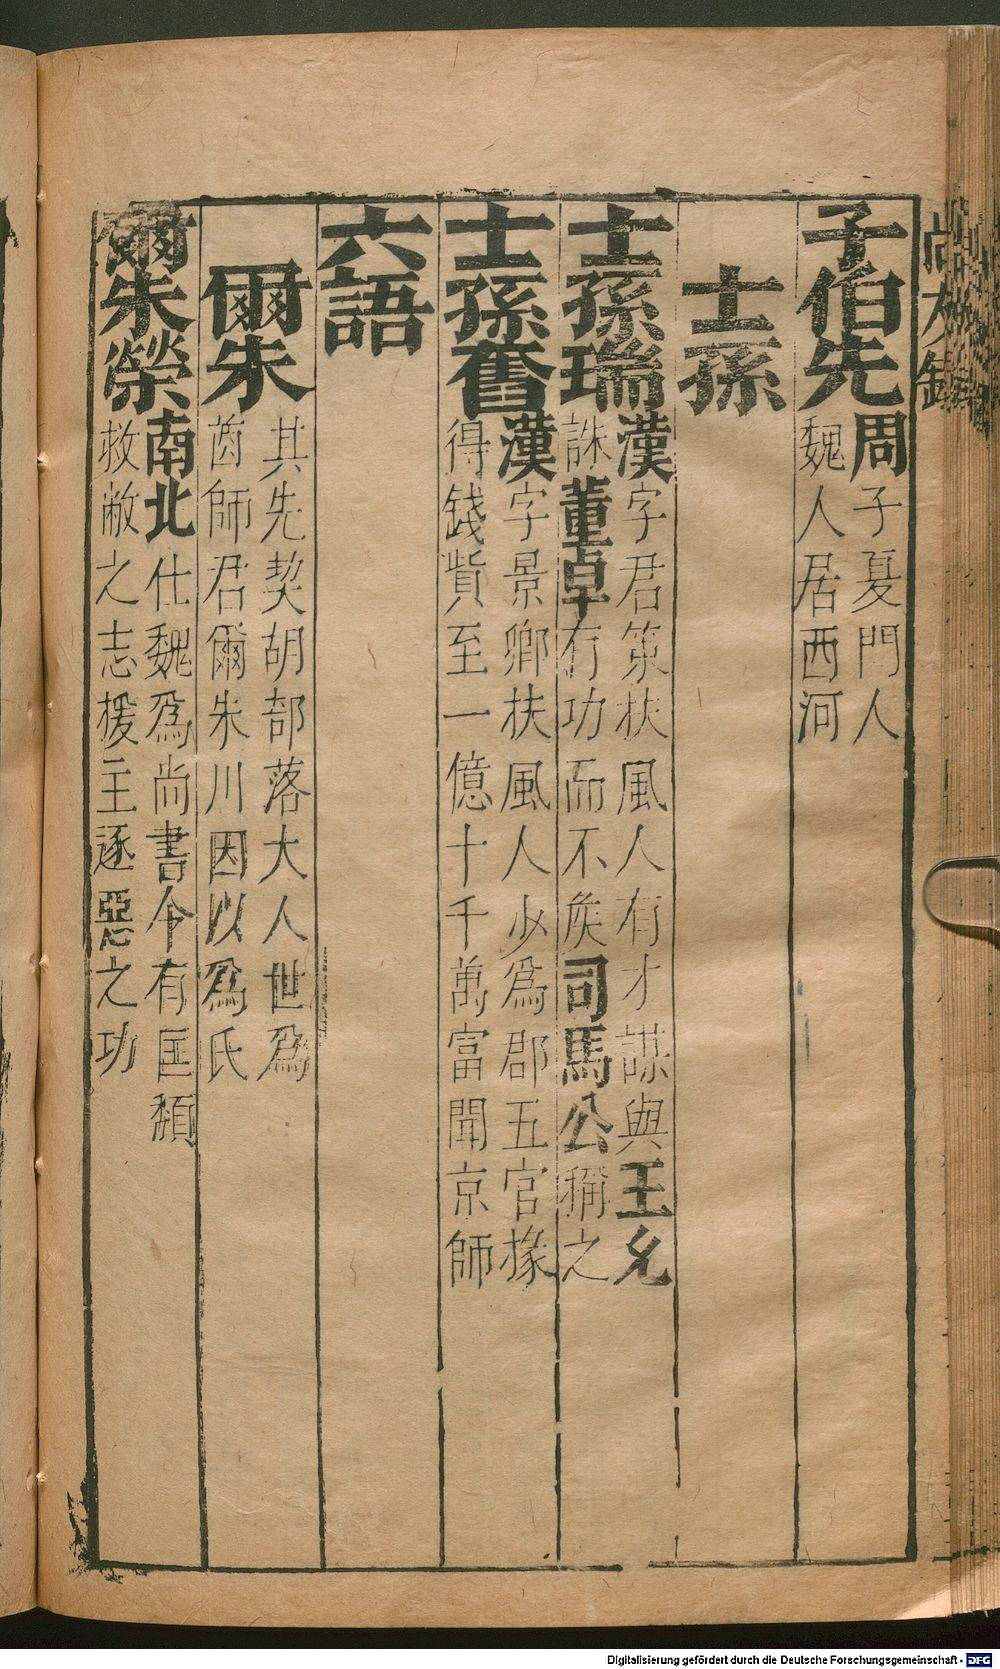 子伯先 周子夏門人
魏人居西河
士孫
士孫瑞 漢字君策扶風人有才謀與王允
誅董卓有功而不矦司馬公稱之
士孫奮 漢字景卿扶風人少為郡五官掾
得錢貲至一億十千萬富聞京師
六語
爾朱 其先契胡部落大人世為
酋師君爾朱川因以為氏
爾朱榮 南北仕魏為尚書令有匡頹
救敝之志援主逐惡之功
Digitalisierung gefördert durch die Deutsche Forschungsgemeinschaft - DFG